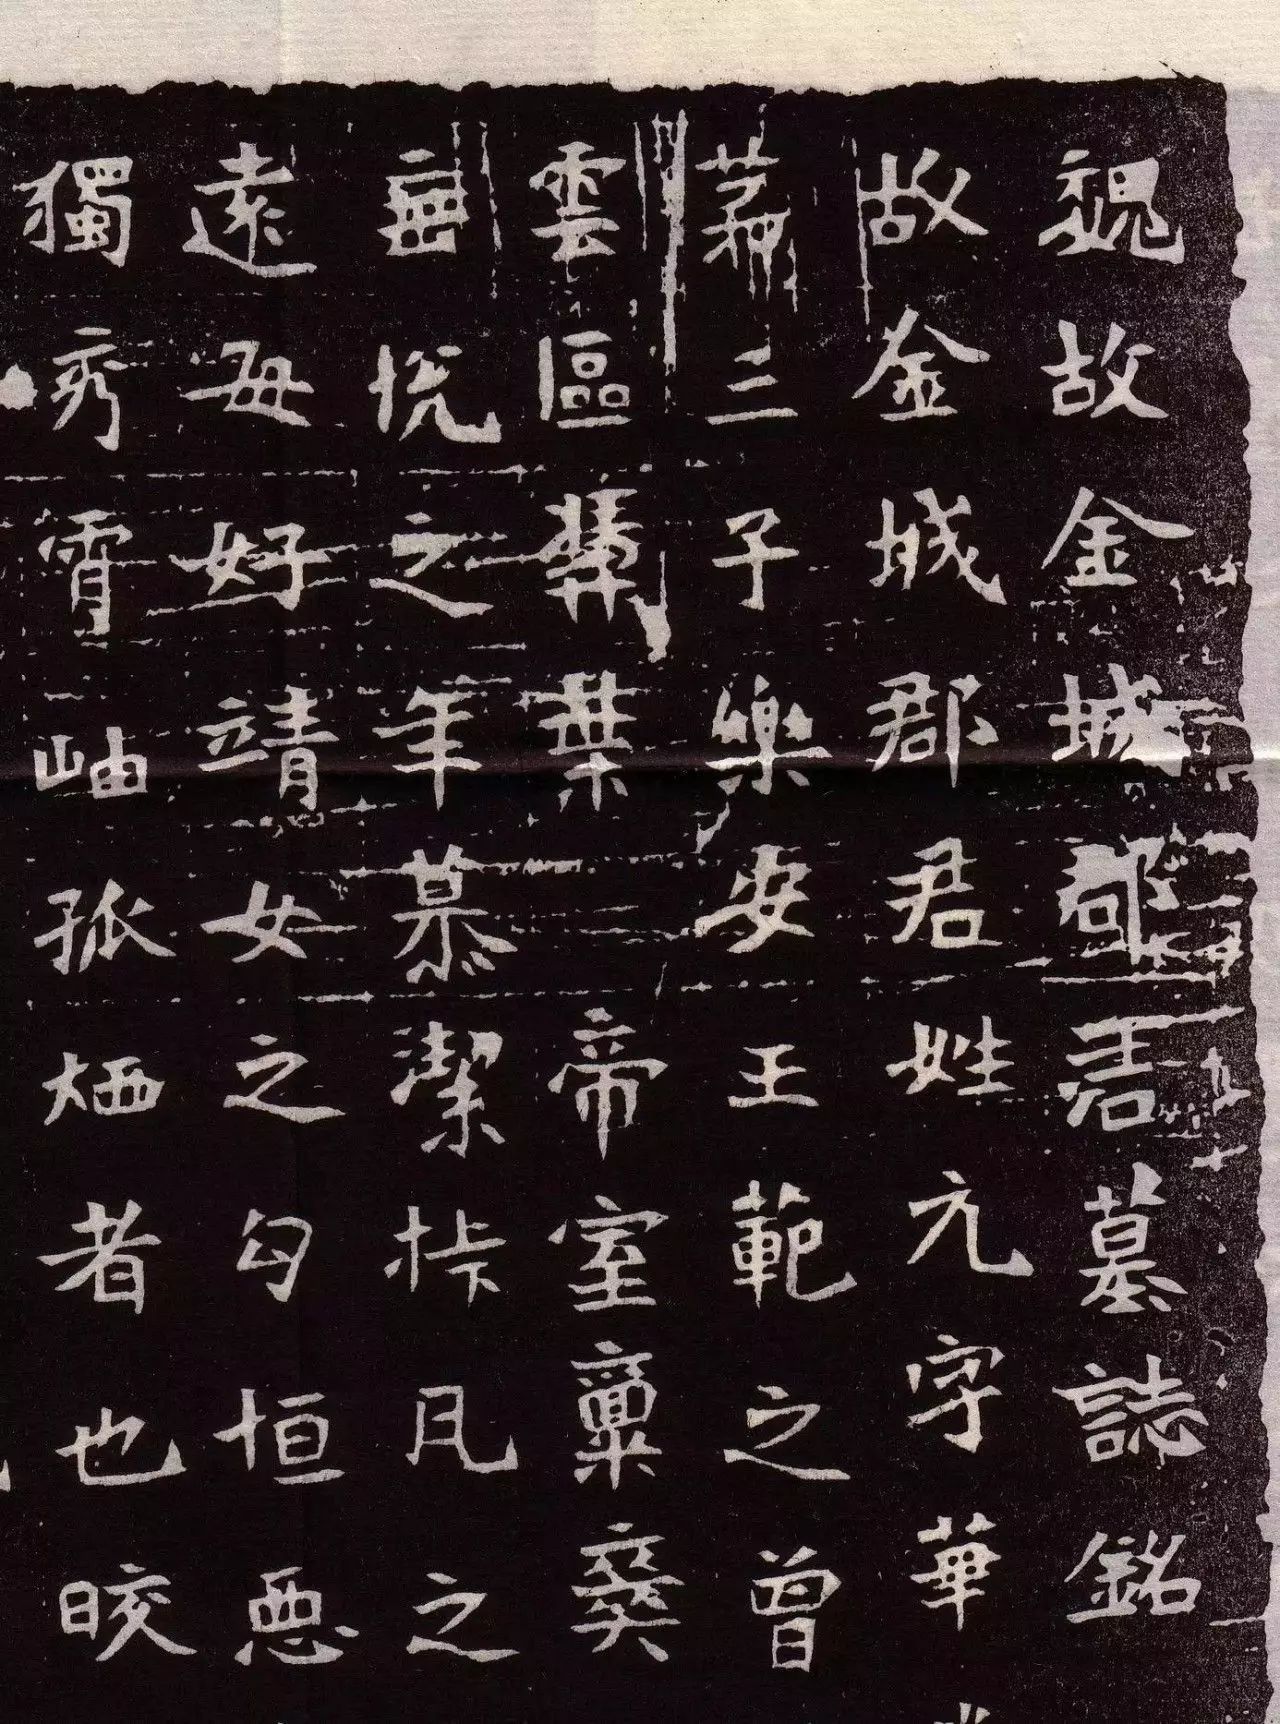 魏故金城郡君墓誌銘
故金城郡君姓元字華
第三子樂安王範之曾
雲區葉帝室稟
恱之年慕潔之
遠毋好靖女之勾恒惡
獨秀霄岫孤栖者也晈